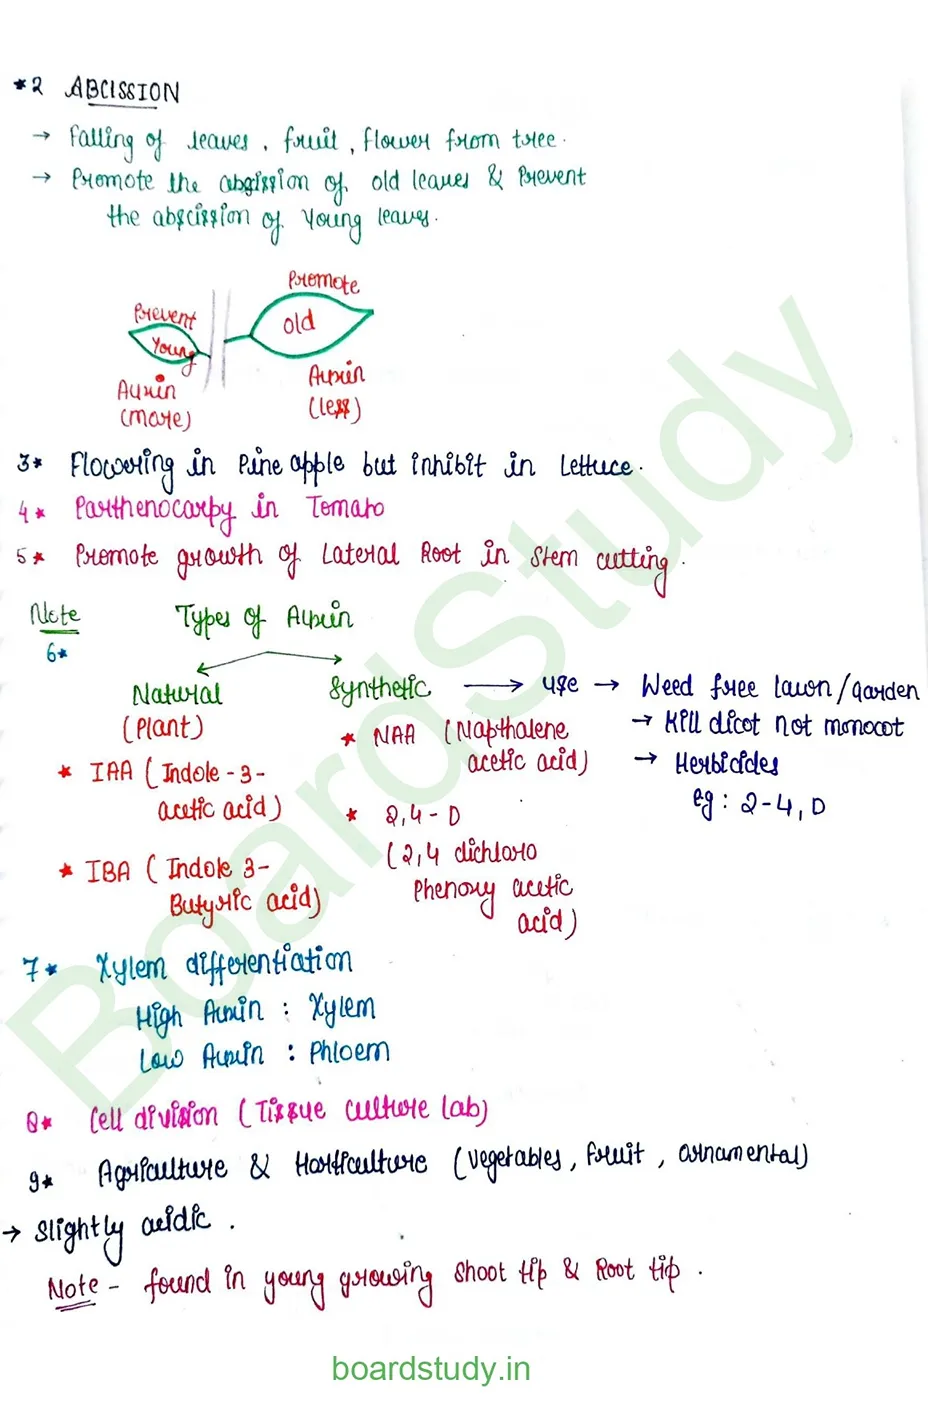 *2 ABCISSION
→ Falling of leaves, fruit, flower from tree.
→ Promote the abscission of old leaves & Prevent
the abscission of young leaves.
Promote
Prevent
Old
Young
Auxin
(more)
Auxin
(less)
3* Flowering in Pine apple but inhibit in Lettuce.
4* Parthenocarpy in Tomato
5* Promote growth of Lateral Root in Stem cutting.
Note Types of Auxin
6*
Natural Synthetic → use → Weed free lawn/garden
(Plant) * NAA (Napthalene → Kill dicot not monocot
acetic acid) → Herbicides
* IAA (Indole-3- eg: 2-4, D
acetic acid) * 2,4-D
(2,4 dichloro
* IBA (Indole 3- Phenoxy acetic
Butyric acid) acid)
7* Xylem differentiation
High Auxin : Xylem
Low Auxin : Phloem
8* Cell division (Tissue culture lab)
9* Agriculture & Horticulture (vegetables, fruit, ornamental)
→ Slightly acidic.
Note - found in young growing shoot tip & Root tip.
BoardStudy
boardstudy.in